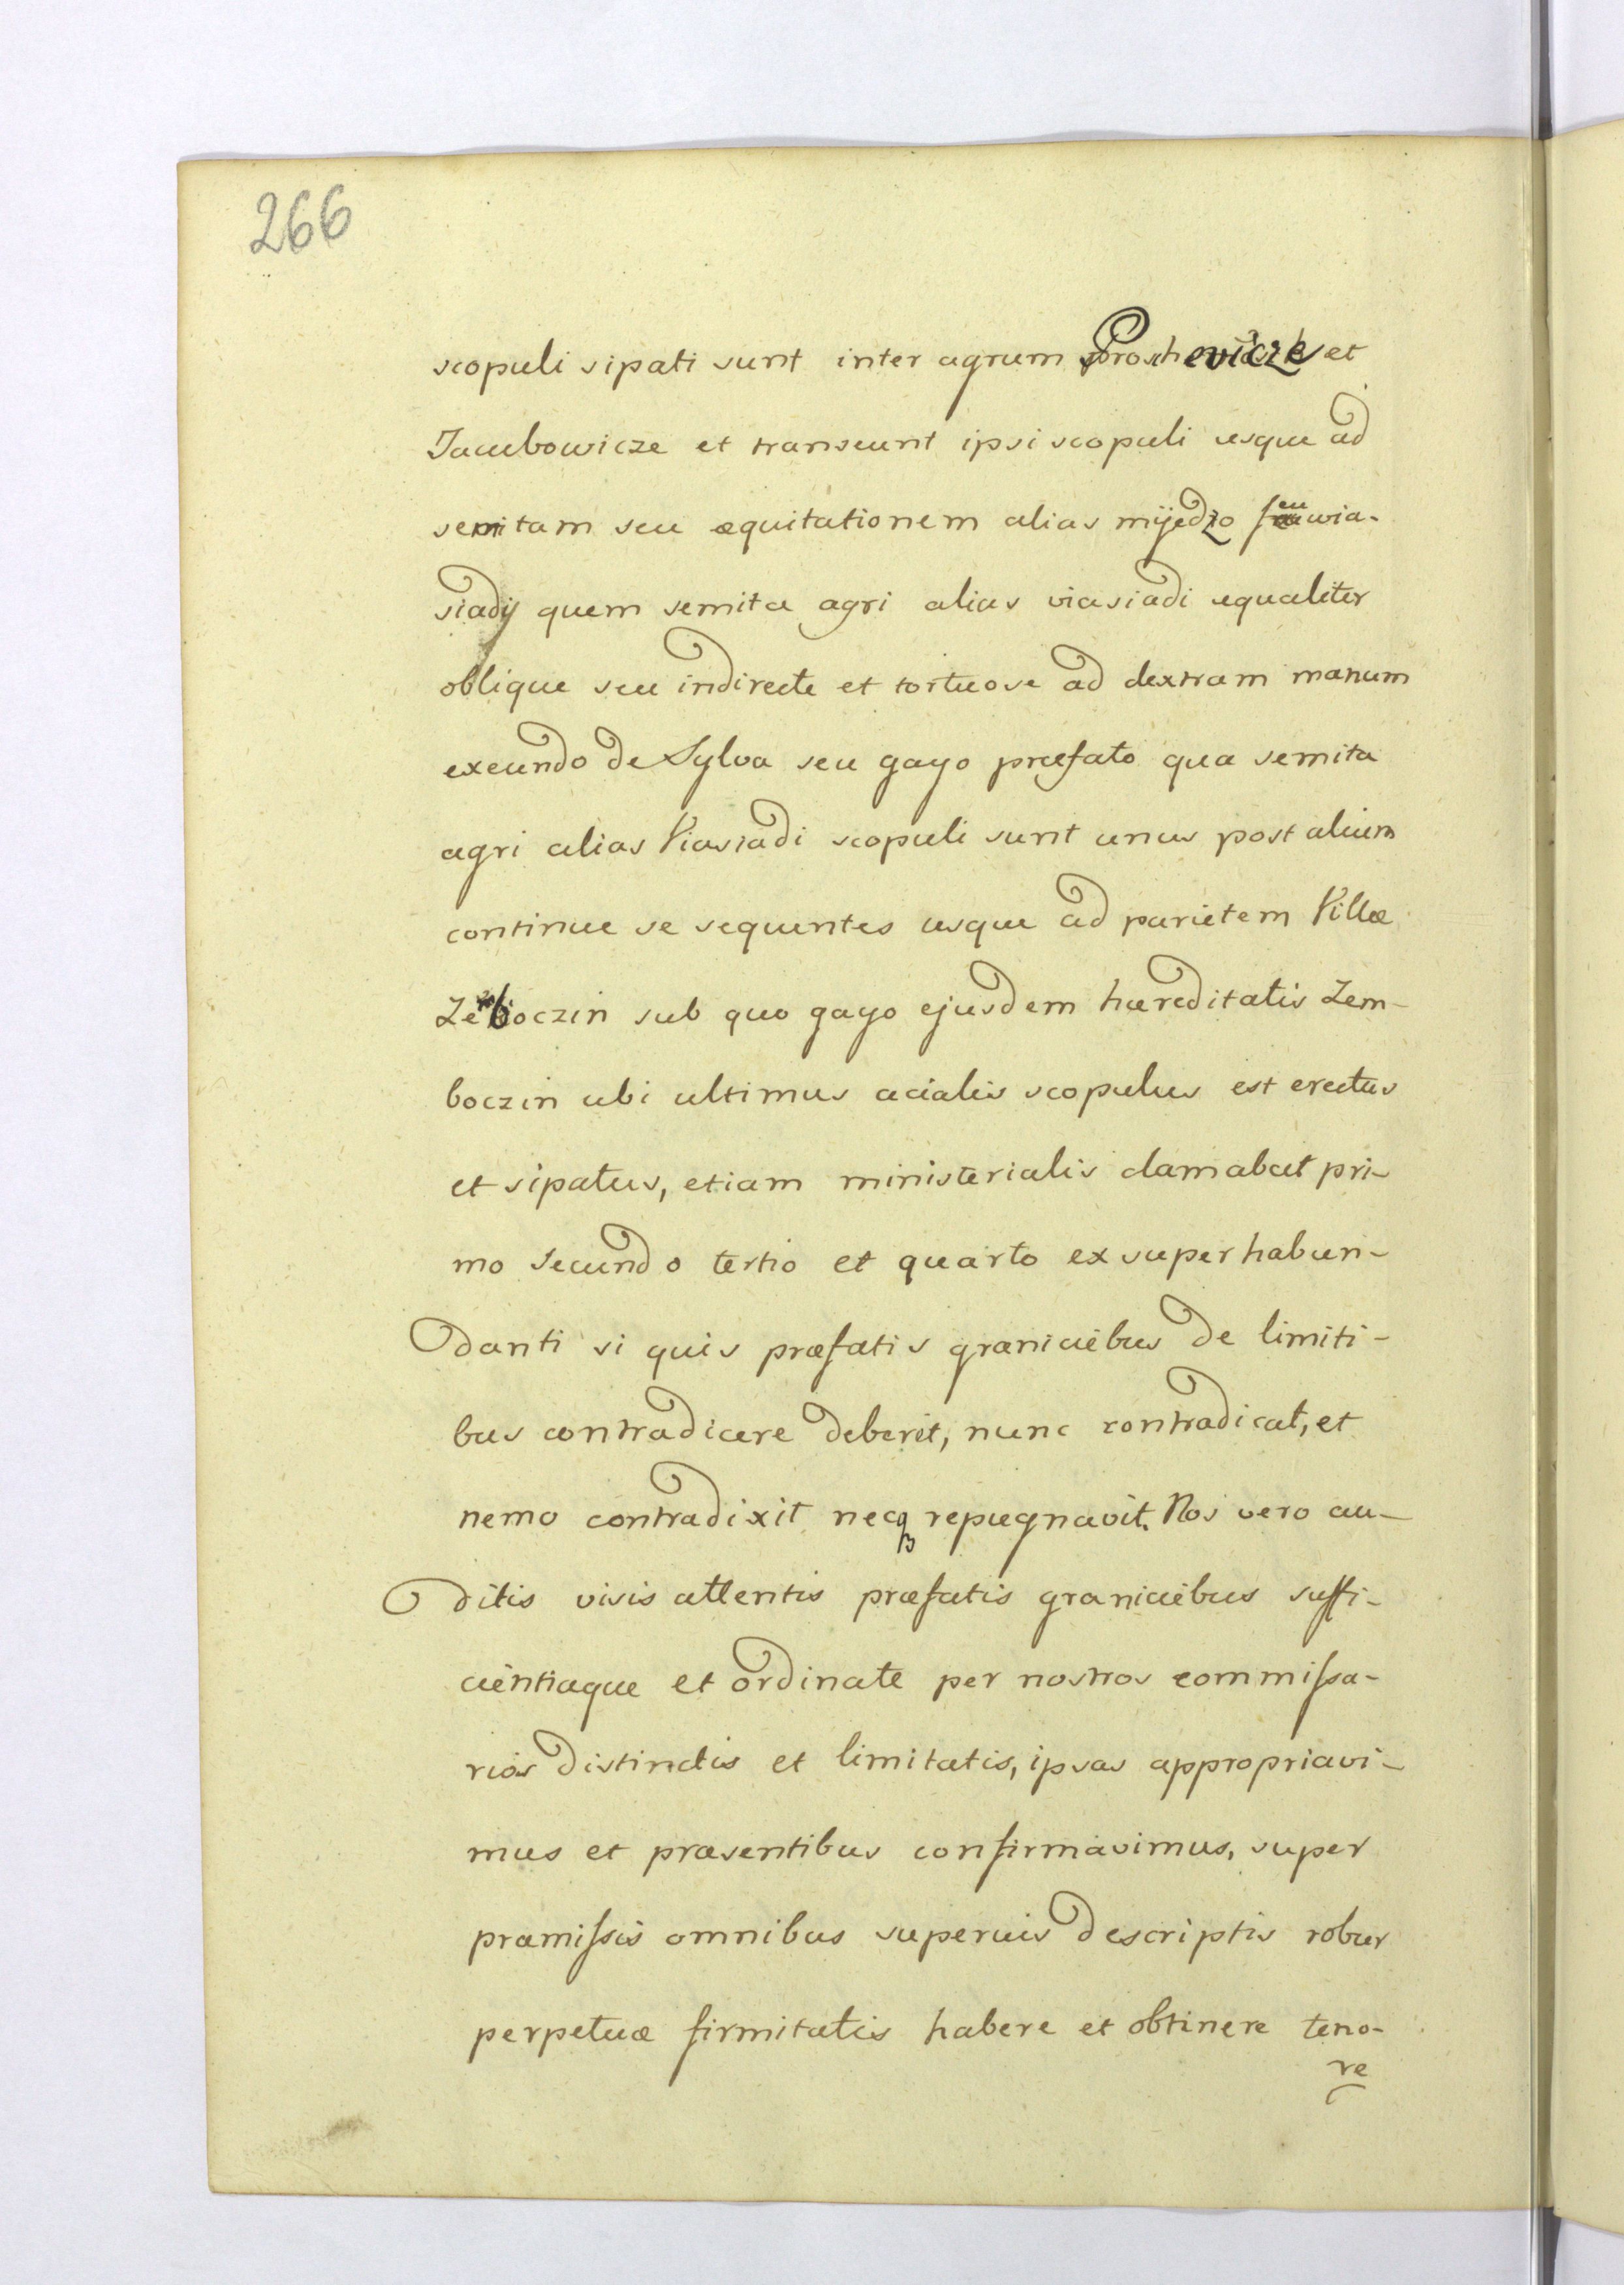 266
scopuli sipati sunt inter agrum Proschevicze et
Jacubowicze et transeunt ipsi scopuli usque ad
semitam seu æquitationem alias mijedzo seu wia-
siadij quem semita agri alias viasiadi equaliter
oblique seu indirecte et tortuose ad dextram manum
exeundo de Sylva seu gayo præfato qua semita
agri alias Viasiadi scopuli sunt unus post alium
continue se sequentes usque ad parietem Villæ
Zemboczin sub quo gayo ejusdem hæreditatis Zem-
boczin ubi ultimus acialis scopulus est erectus
et sipatus, etiam ministerialis clamabat pri-
mo secundo tertio et quarto ex superhabun-
danti si quis præfatis graniciebus de limiti-
bus contradicere deberet, nunc contradicat, et
nemo contradixit necq repugnavit. Nos vero au-
ditis visis attentis præfatis graniciebus suffi-
cientiaque et ordinate per nostros commissa-
rios distinctis et limitatis, ipsas appropriavi-
mus et præsentibus confirmavimus, super
præmissis omnibus superius descriptis robur
perpetuæ firmitatis habere et obtinere teno-
re